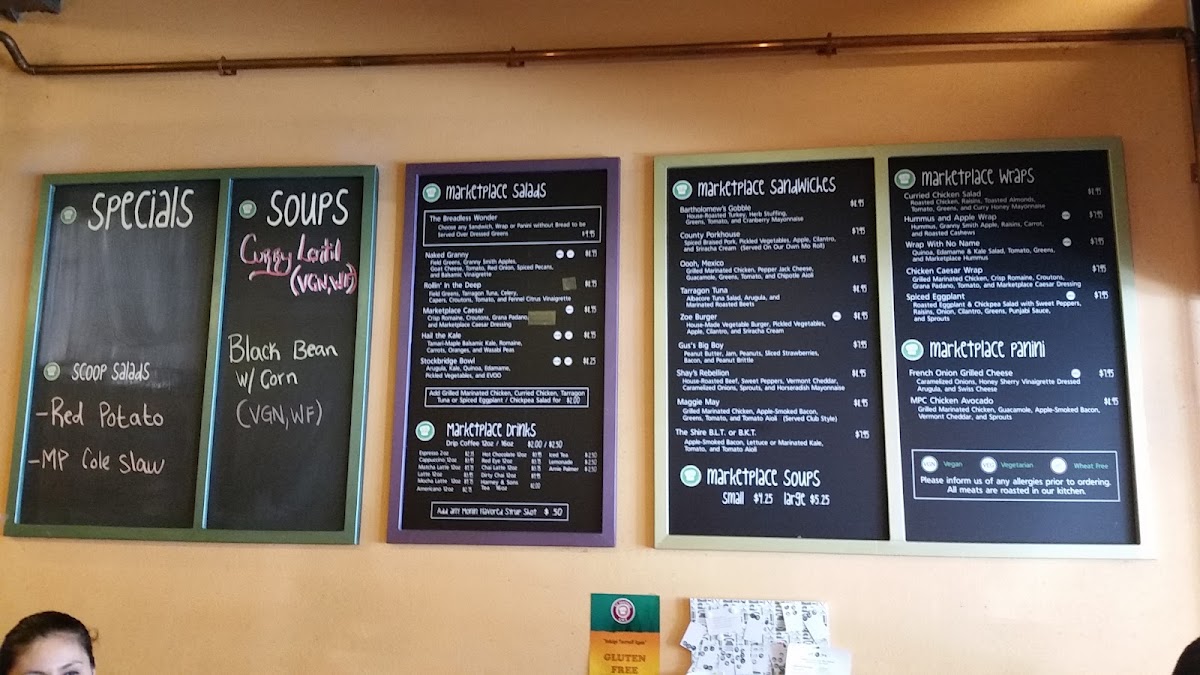 SPECIALS
SCOOP SALADS
-Red Potato
-MP Cole Slaw
SOUPS
Curry Lentil
(VGN, WF)
Black Bean
w/ Corn
(VGN, WF)
Marketplace Salads
The Breadless Wonder
Choose any Sandwich, Wrap or Panini without Bread to be
Served Over Dressed Greens $9.95
Naked Granny
Field Greens, Granny Smith Apples,
Goat Cheese, Tomato, Red Onion, Spiced Pecans,
and Balsamic Vinaigrette
Rollin' In the Deep
Field Greens, Tarragon Tuna, Celery,
Capers, Croutons, Tomato, and Fennel Citrus Vinaigrette
Marketplace Caesar
Crisp Romaine, Croutons, Grana Padano,
and Marketplace Caesar Dressing
Hail the Kale
Tamari-Maple Balsamic Kale, Romaine,
Carrots, Oranges, and Wasabi Peas
Stockbridge Bowl
Arugula, Kale, Quinoa, Edamame,
Pickled Vegetables, and EVOO
Add Grilled Marinated Chicken, Curried Chicken, Tarragon
Tuna or Spiced Eggplant / Chickpea Salad for $2.00
Marketplace Drinks
Drip Coffee 12oz / 16oz $2.00 / $2.50
Espresso 2oz
Cappuccino 12oz
Matcha Latte 12oz
Latte 12oz
Mocha Latte 12oz
Americano 12oz
Hot Chocolate 12oz
Red Eye 12oz
Chai Latte 12oz
Dirty Chai 12oz
Harney & Sons
Tea 16oz $2.00
Iced Tea $2.50
Lemonade $2.50
Arnie Palmer $2.50
Add any Monin Flavored Syrup Shot $ .50
Marketplace Sandwiches
Bartholomew's Gobble
House-Roasted Turkey, Herb Stuffing,
Greens, Tomato, and Cranberry Mayonnaise
County Porkhouse $7.95
Spiced Braised Pork, Pickled Vegetables, Apple, Cilantro,
and Sriracha Cream (Served On Our Own Mo Roll)
Oooh, Mexico
Grilled Marinated Chicken, Pepper Jack Cheese,
Guacamole, Greens, Tomato, and Chipotle Aioli
Tarragon Tuna
Albacore Tuna Salad, Arugula, and
Marinated Roasted Beets
Zoe Burger
House-Made Vegetable Burger, Pickled Vegetables,
Apple, Cilantro, and Sriracha Cream
Gus's Big Boy $7.95
Peanut Butter, Jam, Peanuts, Sliced Strawberries,
Bacon, and Peanut Brittle
Shay's Rebellion
House-Roasted Beef, Sweet Peppers, Vermont Cheddar,
Caramelized Onions, Sprouts, and Horseradish Mayonnaise
Maggie May
Grilled Marinated Chicken, Apple-Smoked Bacon,
Greens, Tomato, and Tomato Aioli (Served Club Style)
The Shire B.L.T. or B.K.T. $7.95
Apple-Smoked Bacon, Lettuce or Marinated Kale,
Tomato, and Tomato Aioli
Marketplace Soups
Small $4.25 Large $5.25
Marketplace Wraps
Curried Chicken Salad
Roasted Chicken, Raisins, Toasted Almonds,
Tomato, Greens, and Curry Honey Mayonnaise
Hummus and Apple Wrap $7.95
Hummus, Granny Smith Apple, Raisins, Carrot,
and Roasted Cashews
Wrap With No Name $7.95
Quinoa, Edamame & Kale Salad, Tomato, Greens,
and Marketplace Hummus
Chicken Caesar Wrap $7.95
Grilled Marinated Chicken, Crisp Romaine, Croutons,
Grana Padano, Tomato, and Marketplace Caesar Dressing
Spiced Eggplant $7.95
Roasted Eggplant & Chickpea Salad with Sweet Peppers,
Raisins, Onion, Cilantro, Greens, Punjabi Sauce,
and Sprouts
Marketplace Panini
French Onion Grilled Cheese $7.95
Caramelized Onions, Honey Sherry Vinaigrette Dressed
Arugula, and Swiss Cheese
MPC Chicken Avocado
Grilled Marinated Chicken, Guacamole, Apple-Smoked Bacon,
Vermont Cheddar, and Sprouts
VGN Vegan VEG Vegetarian WF Wheat Free
Please inform us of any allergies prior to ordering.
All meats are roasted in our kitchen.
GLUTEN
FREE